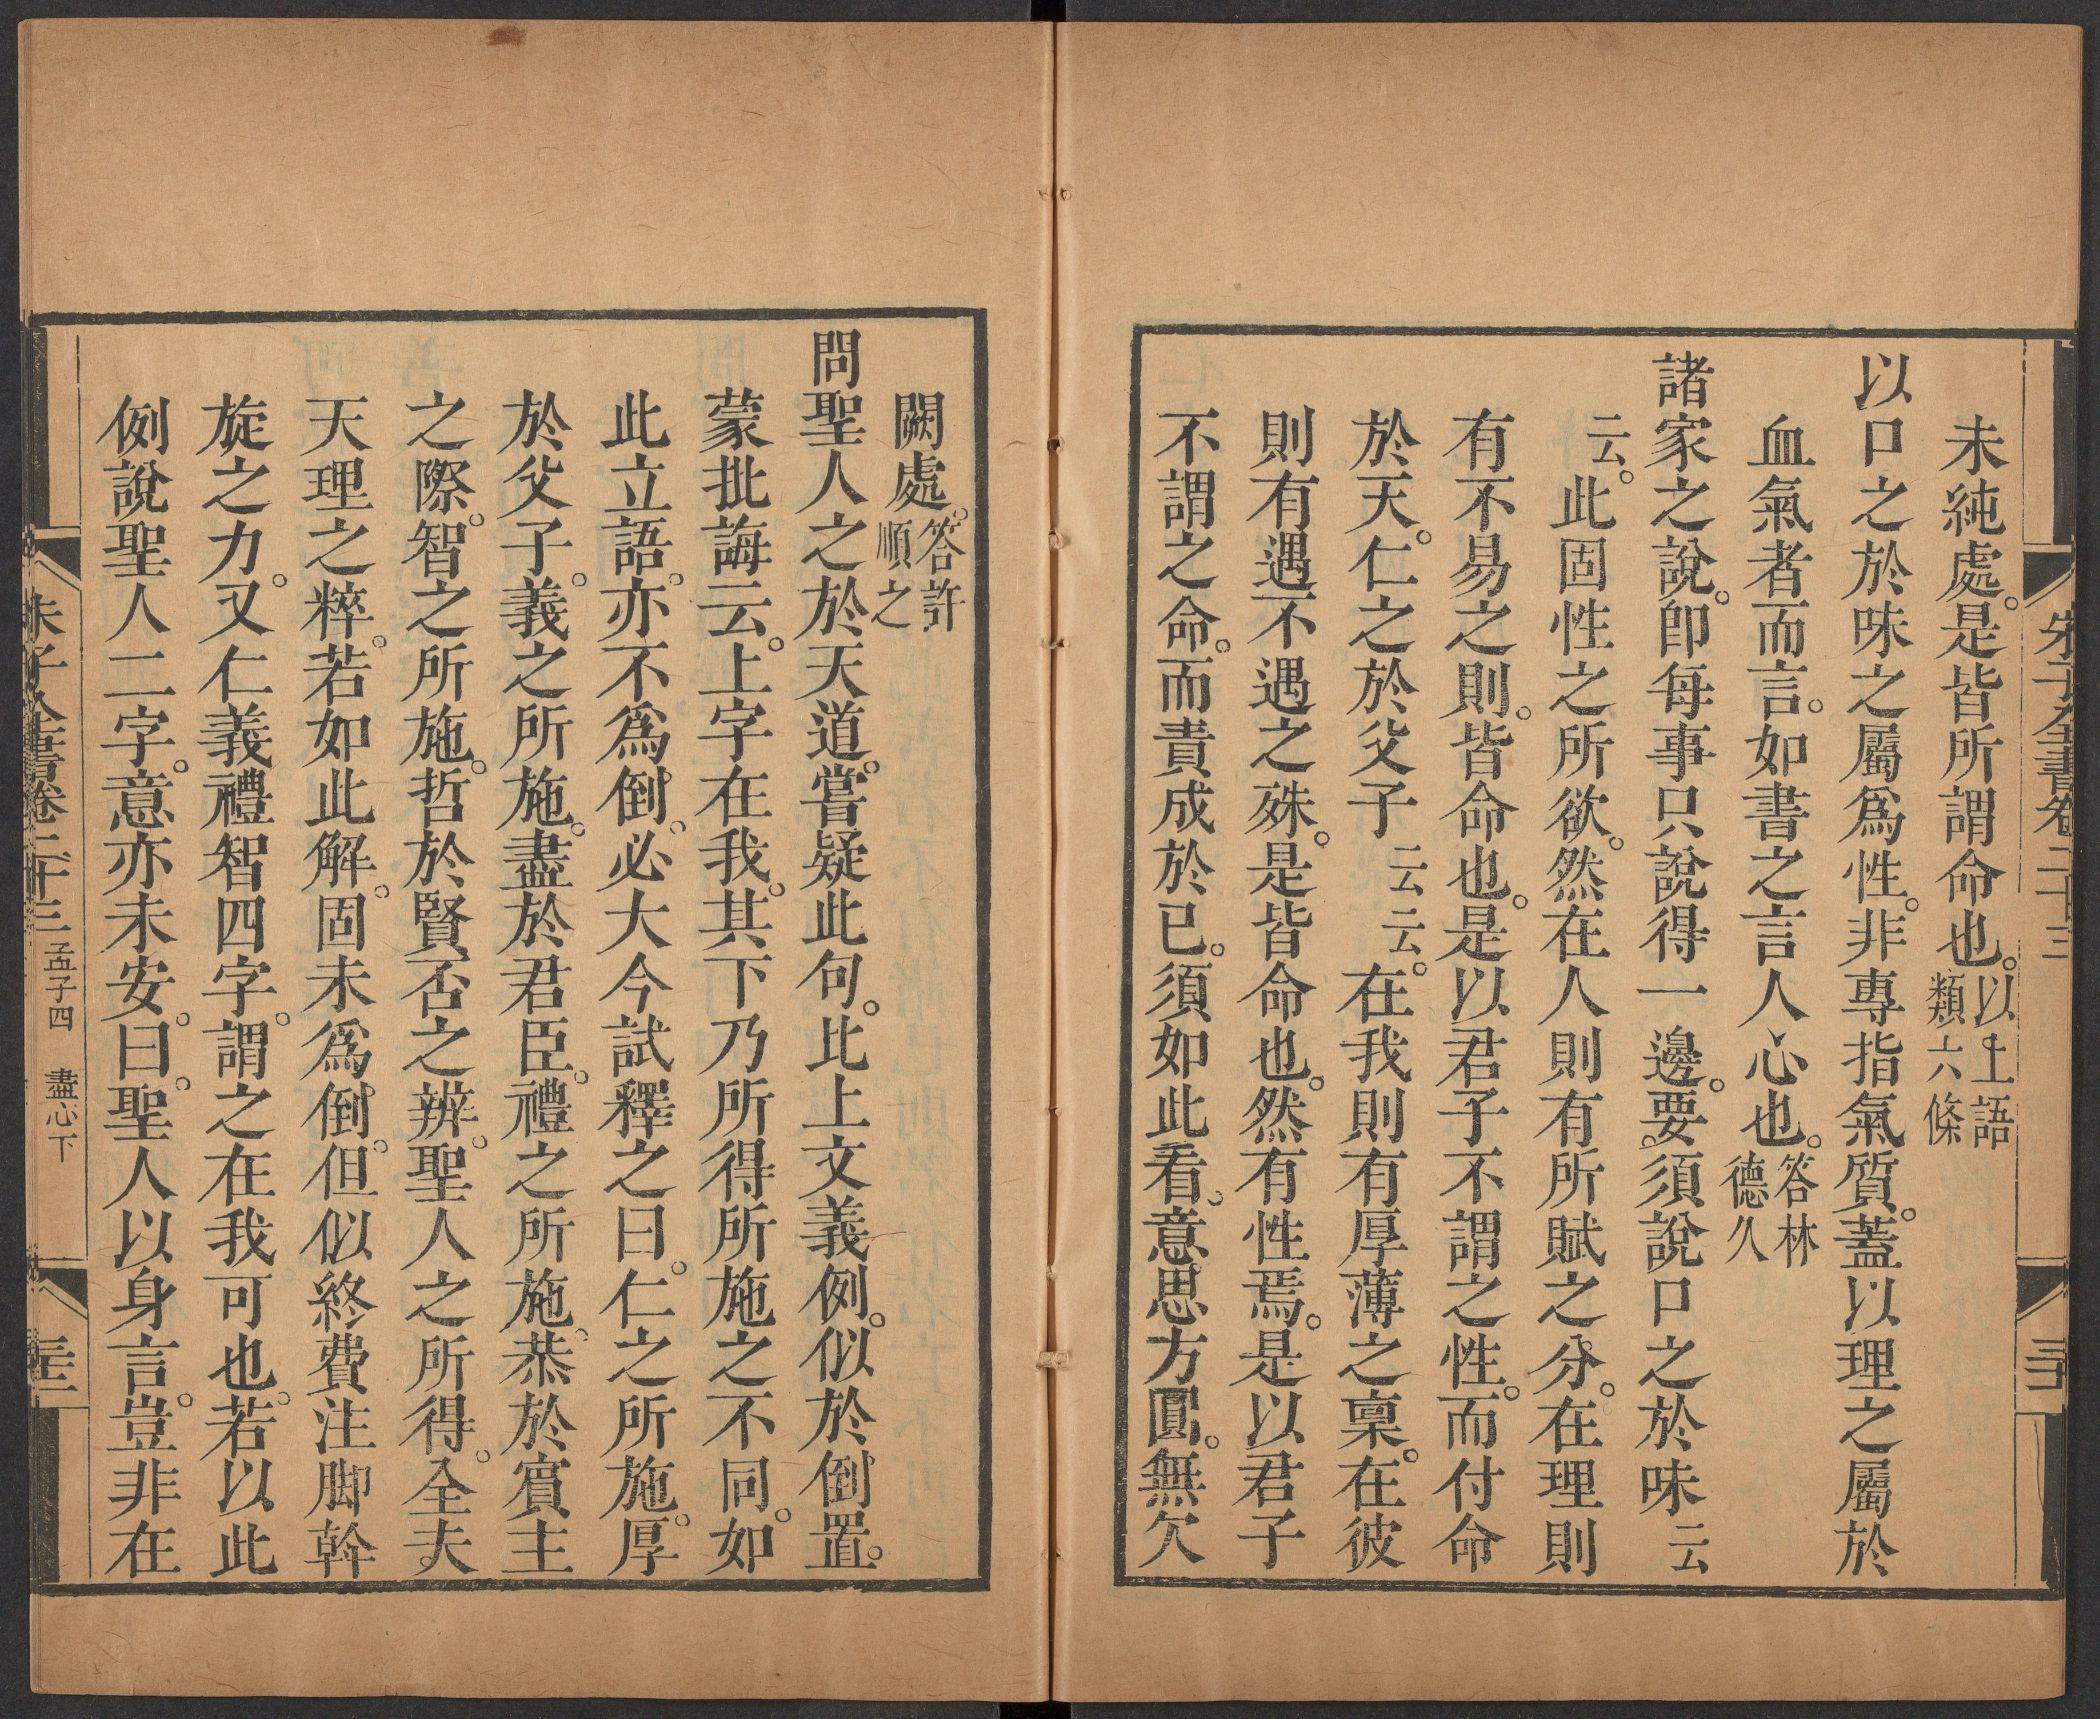 朱子全書卷二十三
未純處。是皆所謂命也。以上語類六條
以口之於味之屬爲性。非專指氣質。蓋以理之屬於
血氣者而言。如書之言人心也。答林德久
諸家之說。卽每事只說得一邊。要須說口之於味云
云。此固性之所欲。然在人則有所賦之分。在理則
有不易之則。皆命也。是以君子不謂之性。而付命
於天。仁之於父子云云。在我則有厚薄之稟。在彼
則有遇不遇之殊。是皆命也。然有性焉。是以君子
不謂之命。而責成於已。須如此看。意思方圓。無欠
闕處。答許順之
問聖人之於天道。嘗疑此句。此上文義例。似於倒置。
蒙批誨云。上字在我。其下乃所得所施之不同。如
此立語。亦不爲倒。必大今試釋之曰。仁之所施。厚
於父子。義之所施。盡於君臣。禮之所施。恭於賓主
之際。智之所施。哲於賢否之辨。聖人之所得。全夫
天理之粹。若如此解。固未爲倒。但似終費注脚幹
旋之力。又仁義禮智四字。謂之在我可也。若以此
例說聖人二字。意亦未安。曰。聖人以身言。豈非在
朱子全書卷二十三 孟子四 盡心下